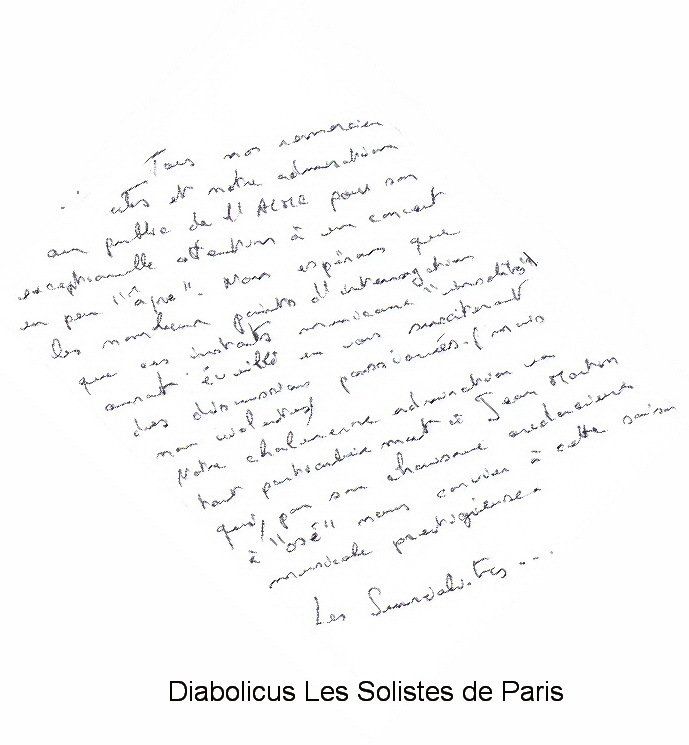 Tous nos remercie
et notre admiration
au public de l'ACME pour son
exceptionnelle attention à un concert
un peu "âpre". Nous espérons que
les nombreux points d'interrogation
que ces instants musicaux "insolites"
auront éveillé en vous susciteront
des discussions passionnées. (mais
non violentes)
Notre chaleureuse admiration va
tout particulièrement à Jean
qui, par son audacieuse
à "osé" nous convier à cette saison
musicale prestigieuse.
Les ...
Diabolicus Les Solistes de Paris